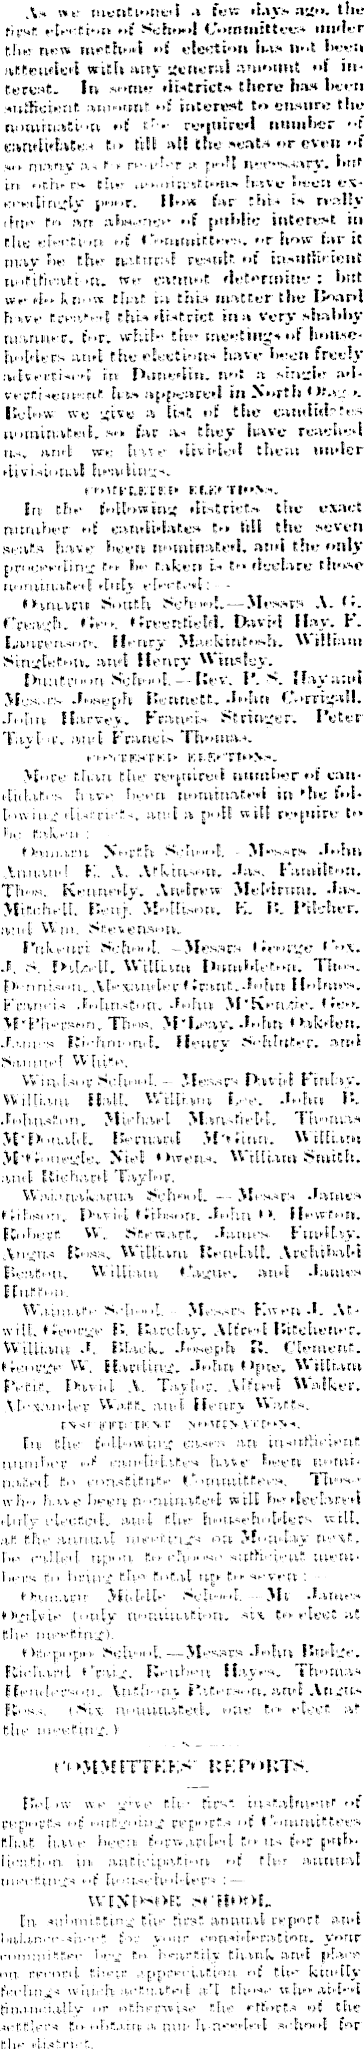 As we mentioned a few days ago, the
first election of School Committees under
the new method of election has not been
attended with any general amount of in-
terest. In some districts there has been
sufficient amount of interest to ensure the
nomination of the required number of
candidates to fill all the seats or even of
so many as to render a poll necessary, but
in others the nominations have been ex-
ceedingly poor. How far this is really
due to an absence of public interest in
the election of Committees, or how far it
may be the natural result of insufficient
notification, we cannot determine; but
we do know that in this matter the Board
have treated this district in a very shabby
manner, for, while the meetings of house-
holders and the elections have been freely
advertised in Dunedin, not a single ad-
vertisement has appeared in North Otago.
Below we give a list of the candidates
nominated, so far as they have reached
us, and we have divided them under
divisional headings.
COMPLETED ELECTIONS.
In the following districts the exact
number of candidates to fill the seven
seats have been nominated, and the only
proceeding to be taken is to declare those
nominated duly elected:—
Oamaru South School.—Messrs A. G.
Creagh, Geo. Greenfield, David Hay, F.
Laurenson, Henry Mackintosh, William
Singleton, and Henry Winsley.
Duntroon School.—Rev. P. S. Hay and
Messrs Joseph Bennett, John Corrigall,
John Harvey, Francis Stringer, Peter
Taylor, and Francis Thomas.
CONTESTED ELECTIONS.
More than the required number of can-
didates have been nominated in the fol-
lowing districts, and a poll will require to
be taken:
Oamaru North School.—Messrs John
Annand, E. A. Atkinson, Jas. Familton,
Thos. Kennedy, Andrew Meldrum, Jas.
Mitchell, Benj. Mollison, E. B. Pilcher,
and Wm. Stevenson.
Pukeuri School.—Messrs George Cox,
J. S. Dalzell, William Dumbleton, Thos.
Dennison, Alexander Grant, John Holmes,
Francis Johnston, John M'Kenzie, Geo.
M'Pherson, Thos. M'Leay, John Oakden,
James Richmond, Henry Schluter, and
Samuel White.
Windsor School.—Messrs David Finlay,
William Hall, William Lee, John B.
Johnston, Michael Mansfield, Thomas
M'Donald, Bernard M'Ginn, William
M'Gonegle, Niel Owens, William Smith,
and Richard Taylor.
Waianakarua School.—Messrs James
Gibson, David Gibson, John O. Hewton,
Robert W. Stewart, James Findlay,
Angus Ross, William Rendall, Archibald
Beaton, William Cague, and James
Hutton.
Waimate School.—Messrs Ewen J. At-
will, George B. Barclay, Alfred Bitchener,
William J. Black, Joseph R. Clement,
George W. Harding, John Opie, William
Petit, David A. Taylor, Alfred Walker,
Alexander Watt, and Henry Watts.
INSUFFICIENT NOMINATIONS.
In the following cases an insufficient
number of candidates have been nomi-
nated to constitute Committees. Those
who have been nominated will be declared
duly elected, and the householders will,
at the annual meetings on Monday next,
be called upon to choose sufficient mem-
bers to bring the total up to seven:—
Oamaru Middle School.—Mr James
Ogilvie (only nomination, six to elect at
the meeting).
Otepopo School.—Messrs John Budge,
Richard Craig, Reuben Hayes, Thomas
Henderson, Anthony Paterson, and Angus
Ross. (Six nominated, one to elect at
the meeting.)
COMMITTEES' REPORTS.
Below we give the first instalment of
reports of outgoing reports of Committees
that have been forwarded to us for pub-
lication in anticipation of the annual
meetings of householders:—
WINDSOR SCHOOL.
In submitting the first annual report and
balance-sheet for your consideration, your
committee beg to heartily thank and place
on record their appreciation of the kindly
feelings which actuated all those who aided
financially or otherwise the efforts of the
settlers to obtain a much-needed school for
the district.